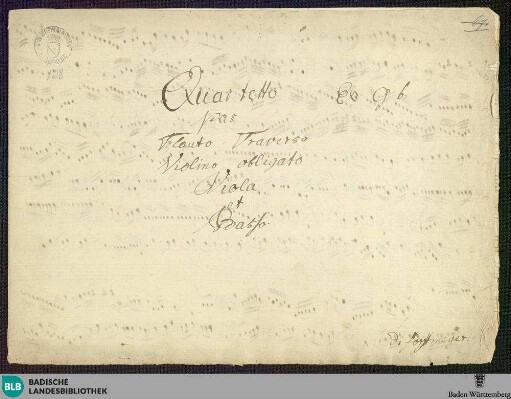 Quartetto Ex G b
pas
Flauto Traverso
Violino obligato
Viola
et
Basso
BLB
BADISCHE
LANDESBIBLIOTHEK
Baden Württemberg